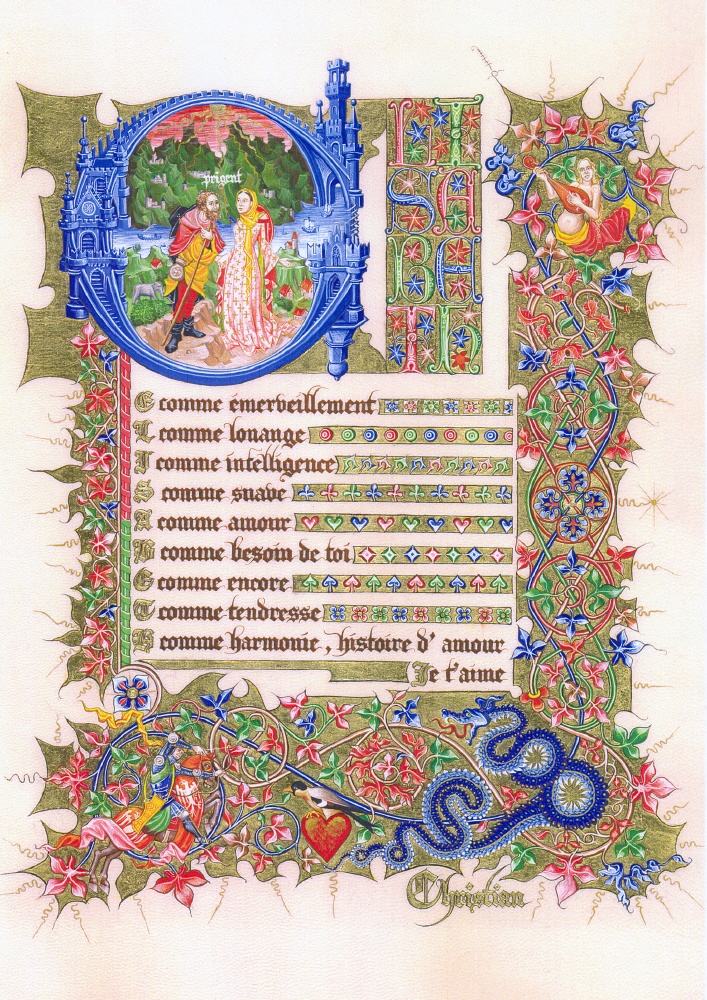 E
prigent
LI
SA
BE
Th
E comme émerveillement
L comme louange
I comme intelligence
S comme suave
A comme amour
B comme besoin de toi
E comme encore
T comme tendresse
H comme harmonie, histoire d' amour
Je t'aime
Christian